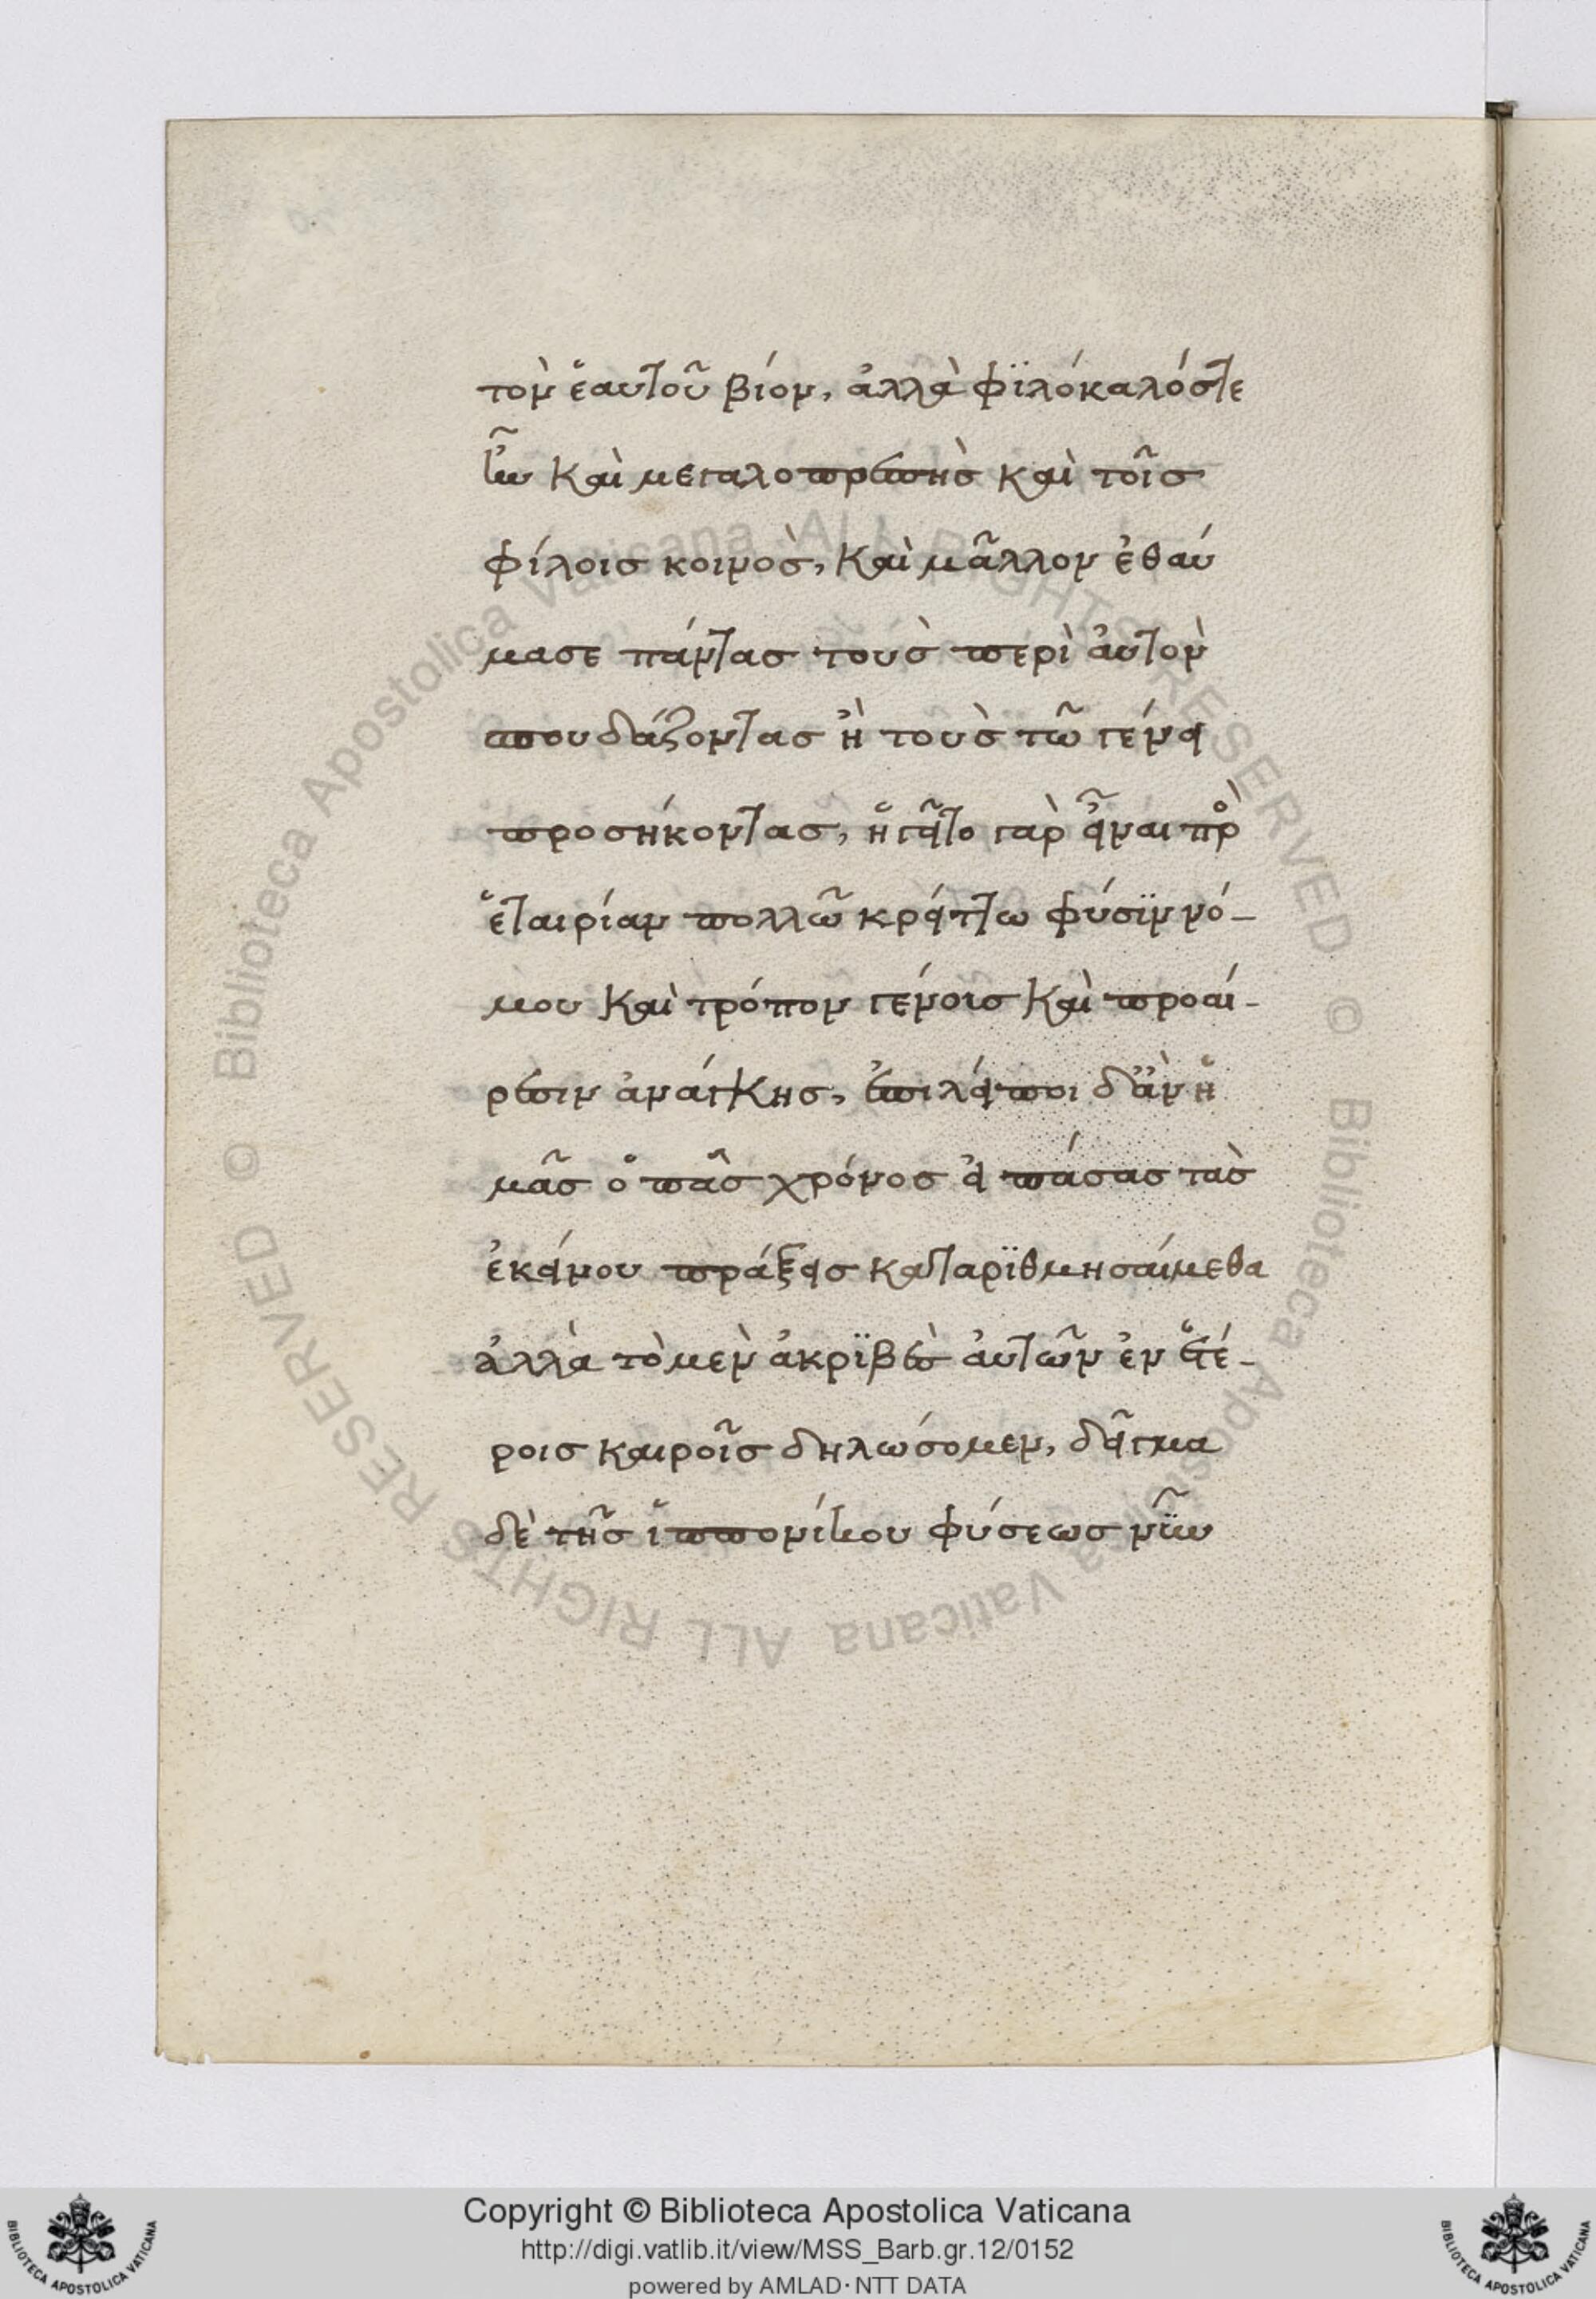 τὸν ἑαυτοῦ βίον, ἀλλὰ φϊλόκαλόστε
ἦν καὶ μεγαλοπρεπὴς καὶ τοῖς
φίλοις κοινὸς, καὶ μᾶλλον ἐθαύ
μασε πάντας τοὺς περὶ ἀυτὸν
σπουδάζοντας ἢ τοὺς τῶ γένει
προσήκοντας, ἡγεῖτο γὰρ εἶναι πρὸ
ἑταιρίαν πολλῶ κρείττω φύσϊν νό-
μου καὶ τρόπον γένοις καὶ προαί-
ρεσιν ἀνάγκης, ἐπιλείποι δἂν ἡ
μᾶς ὁ πᾶς χρόνος εἰ πάσας τὰς
ἐκείνου πράξεις καταρϊθμησαίμεθα
ἀλλὰ τὸ μὲν ἀκρϊβὲς ἀυτῶν ἐν ἑτέ-
ροις καιροῖς δηλώσομεν, δεῖγμα
δὲ τῆς ἱππονίκου φύσεως νῦν
Copyright © Biblioteca Apostolica Vaticana
http://digi.vatlib.it/view/MSS_Barb.gr.12/0152
powered by AMLAD·NTT DATA
© Biblioteca Apostolica Vaticana ALL RIGHTS RESERVED
© Biblioteca Apostolica Vaticana ALL RIGHTS RESERVED
BIBLIOTECA APOSTOLICA VATICANA
BIBLIOTECA APOSTOLICA VATICANA